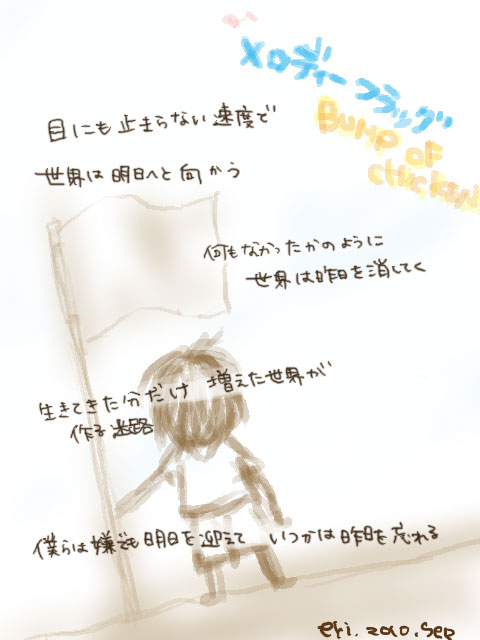 メロディーフラッグ
BUMP OF
CHICKEN
目にも止まらない速度で
世界は明日へと向かう
何もなかったかのように
世界は昨日を消してく
生きてきた分だけ 増えた世界が
作る迷路
僕らは嫌でも明日を迎えて いつかは昨日を忘れる
eri.2010.Sep